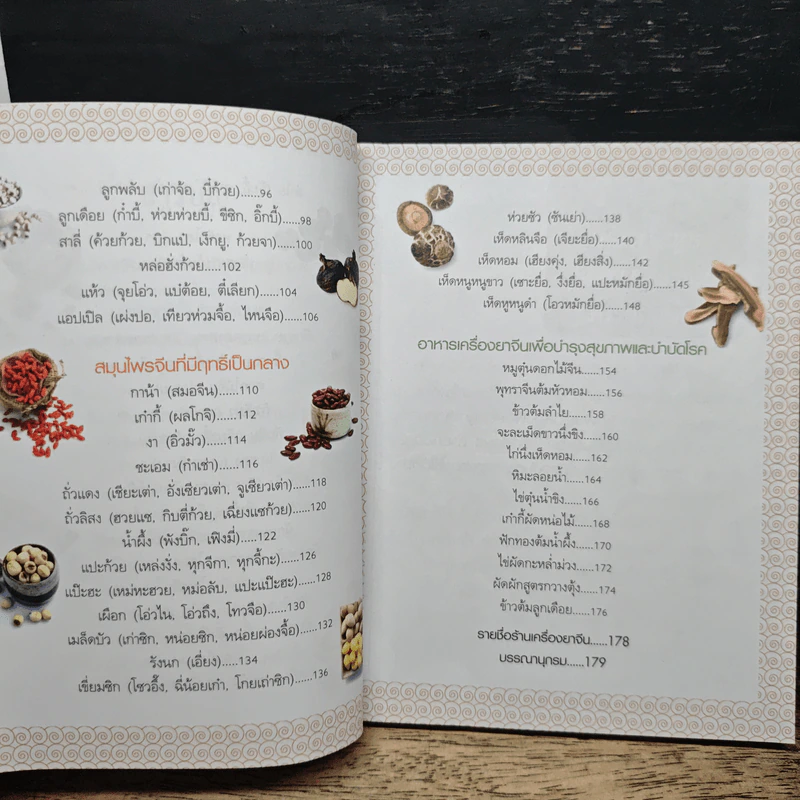 ลูกพลับ (เก่าจ้อ, ปี่ก้วย)......96
ลูกเดือย (ก๋ำบี้, ห่วยห่วยบี้, ชีซิก, อิ๊กบี้)......98
สาลี่ (ค้วยก้วย, บิกแป๋, เง็กยู, ก้วยจา)......100
หล่อฮั่งก้วย......102
แห้ว (จุยโอ่ว, แบ่ต้อย, ตี่เลียก)......104
แอปเปิล (เผ่งปอ, เทียวท่วมจื้อ, ไหนจือ)......106
สมุนไพรจีนที่มีฤทธิ์เป็นกลาง
กาน้า (สมอจีน)......110
เก๋ากี้ (ผลโกจิ)......112
งา (อิ่วมั๊ว)......114
ชะเอม (กำเช่า)......116
ถั่วแดง (เซียะเต่า, อั่งเซียวเต่า, จูเซียวเต่า)......118
ถั่วลิสง (ฮวยแซ, กิบตี่ก้วย, เฉี่ยงแซก้วย)......120
น้ำผึ้ง (พังบิ๊ก, เฟิงมี่)......122
แปะก้วย (เหล่งงั่ง, หุกจีกา, หุกจี้กะ)......126
แป๊ะฮะ (เหม่หะฮวย, หม่อลับ, แปะแป๊ะฮะ)......128
เผือก (โอ่วไน, โอ่วถึง, โทวจือ)......130
เมล็ดบัว (เก่าซิก, หน่อยซิก, หน่อยผ่องจื้อ)......132
รังนก (เอี่ยง).....134
เขี่ยมซิก (โซวอึ๊ง, ฉี่น้อยเก๋า, โกยเถ่าซิก)......136
ห่วยซัว (ซันเย่า)......138
เห็ดหลินจือ (เจียะยื่อ)......140
เห็ดหอม (เฮียงคุ่ง, เฮียงสิ่ง)......142
เห็ดหนูหนูขาว (เซาะยื่อ, งึ่งยื่อ, แปะหมักยื่อ)......145
เห็ดหูหนูดำ (โอวหมักยื่อ)......148
อาหารเครื่องยาจีนเพื่อบำรุงสุขภาพและบำบัดโรค
หมูตุ๋นดอกไม้จีน......154
พุทราจีนต้มหัวหอม......156
ข้าวต้มลำไย......158
จะละเม็ดขาวนึ่งขิง......160
ไก่นึ่งเห็ดหอม......162
หิมะลอยน้ำ......164
ไข่ตุ๋นน้ำขิง......166
เก๋ากี้ผัดหน่อไม้......168
ฟักทองต้มน้ำผึ้ง......170
ไข่ผัดกะหล่ำม่วง......172
ผัดผักสูตรกวางตุ้ง......174
ข้าวต้มลูกเดือย......176
รายชื่อร้านเครื่องยาจีน......178
บรรณานุกรม......179